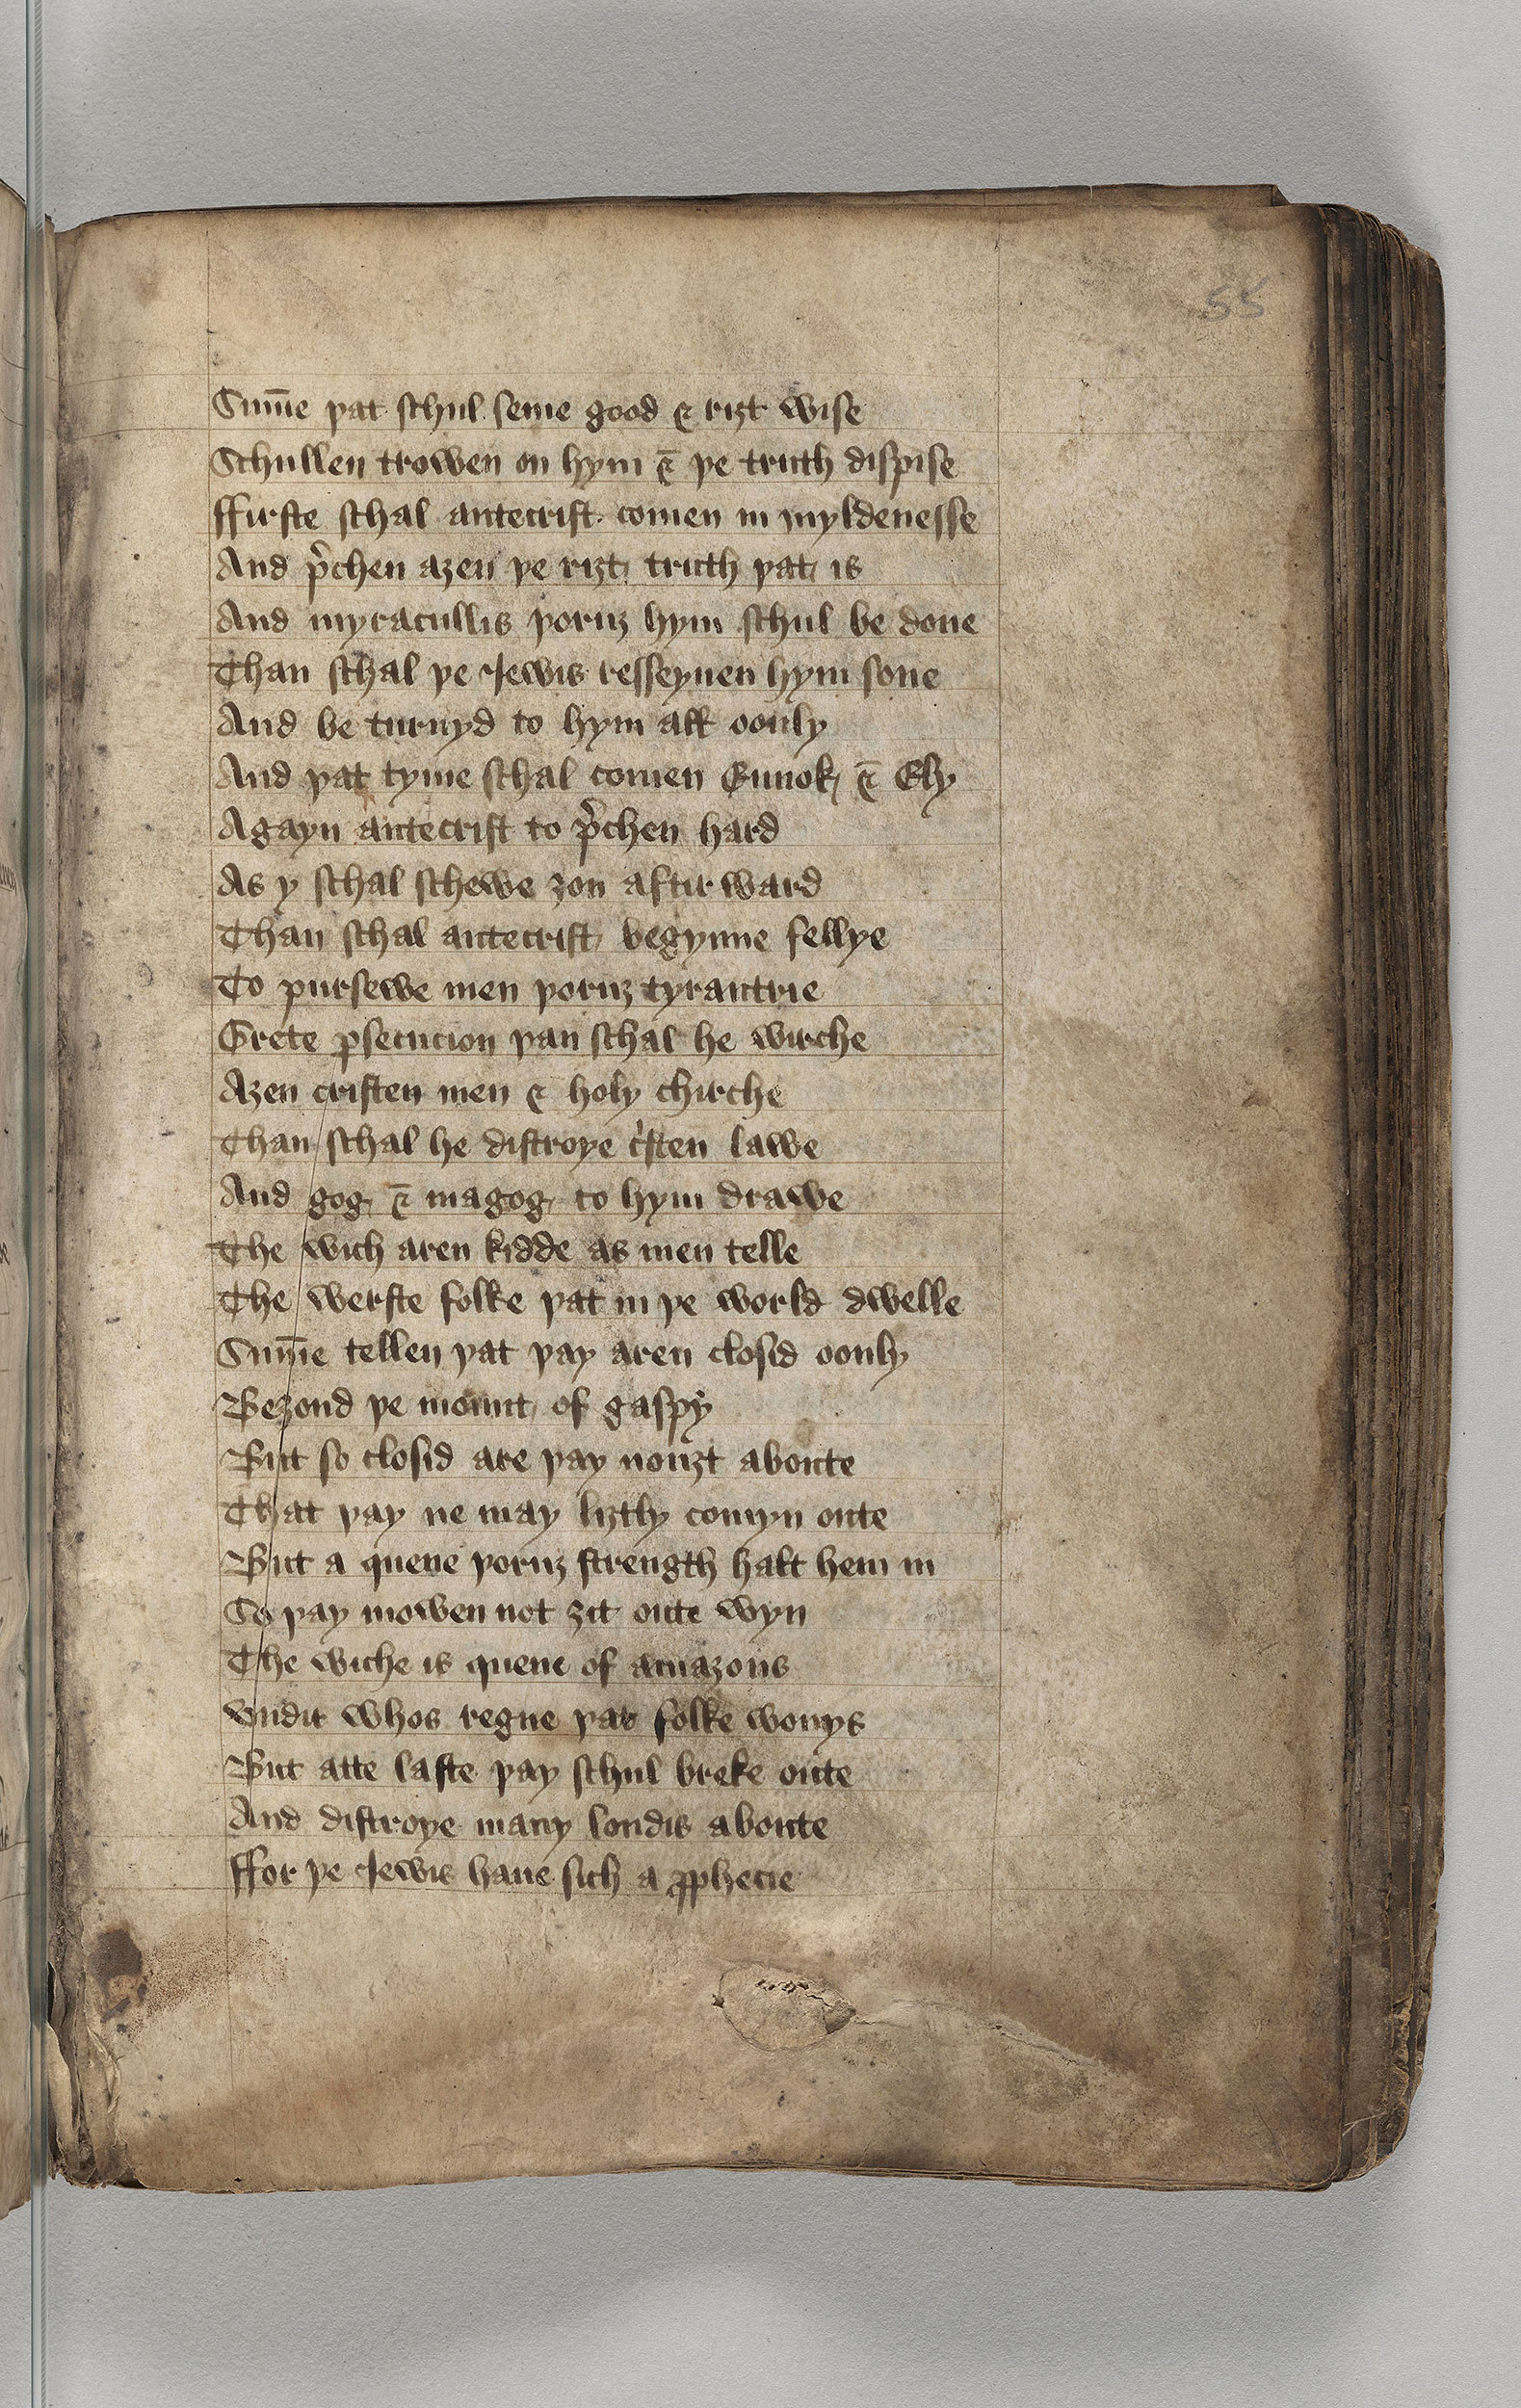 55
Sum̄e þat schul seme good & riȝt wise
Schullen trowen on hym & þe truth dispise
ffirste schal antecrist comen in myldenesse
And p̉chen aȝen þe riȝt truth þat is
And myracullis þoruȝ hym schul be done
Than schal þe Iewis resseyuen hym sone
And be turnyd to hym all oonly
And þat tyme schal comen Ennok & Ely
Agayn antecrist to p̉chen hard
As y schal schewe ȝou aftirward
Than schal antecrist begynne fellye
To pursewe men þoruȝ tyrantrie
Grete ꝑsecucion þan schal he wirche
Aȝen cristen men & holy chirche
Than schal he distroye cͥsten lawe
And gog & magog to hym drawe
The wich aren kidde as men telle
The werste folke þat in þe world dwelle
Sum̄e tellen þat þay aren closid oonly
Beȝond þe mount of gaspy
But so closid are þay nouȝt aboute
That þay ne may liȝtly comyn oute
But a quene þoruȝ strength halt hem in
So þay mowen not ȝit oute wyn
The wiche is quene of amazons
vndir whos regne þat folke wonys
But atte laste þay schul breke oute
And distroye many londis aboute
ffor þe Iewis haue sich a ꝓphecie